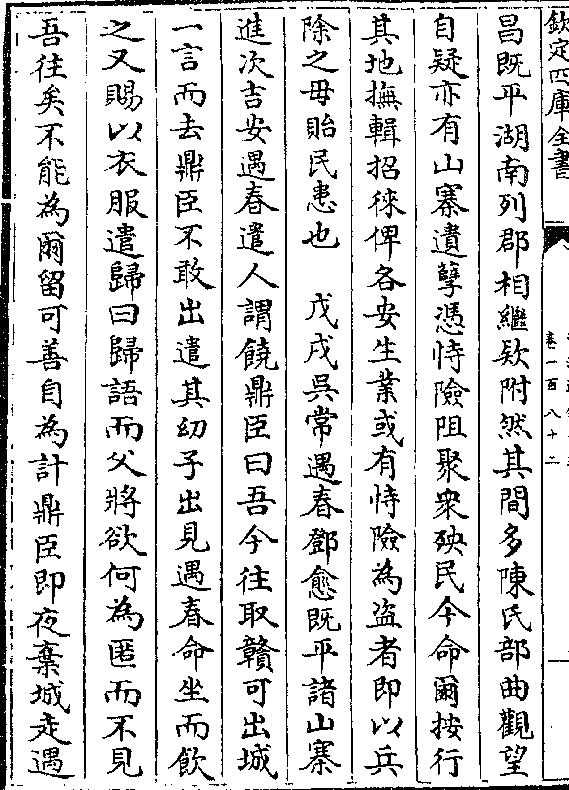 欽定四庫全書
卷一百八十二
昌既平湖南列郡相繼欵附然其間多陳氏部曲觀望
自疑亦有山寨遺孽憑恃險阻聚衆殃民今命爾按行
其地撫輯招徠俾各安生業或有恃險為盜者即以兵
除之毋貽民患也　戊戌吳常遇春鄧愈既平諸山寨
進次吉安遇春遣人謂饒鼎臣曰吾今往取贛可出城
一言而去鼎臣不敢出遣其幼子出見遇春命坐而飲
之又賜以衣服遣歸曰歸語而父將欲何為匿而不見
吾往矣不能為爾留可善自為計鼎臣即夜棄城走遇